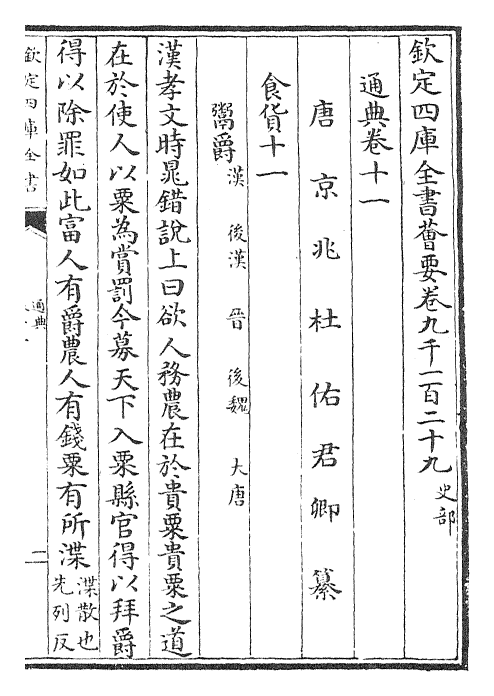 欽定四庫全書薈要卷九千一百二十九 史部
通典卷十一
唐京兆杜佑君卿纂
食貨十一
鬻爵 漢 後漢 晉 後魏 大唐
漢孝文時晁錯說上曰欲人務農在於貴粟貴粟之道
在於使人以粟為賞罰今募天下入粟縣官得以拜爵
得以除罪如此富人有爵農人有錢粟有所渫渫散也先列反
欽定四庫全書
通典
二